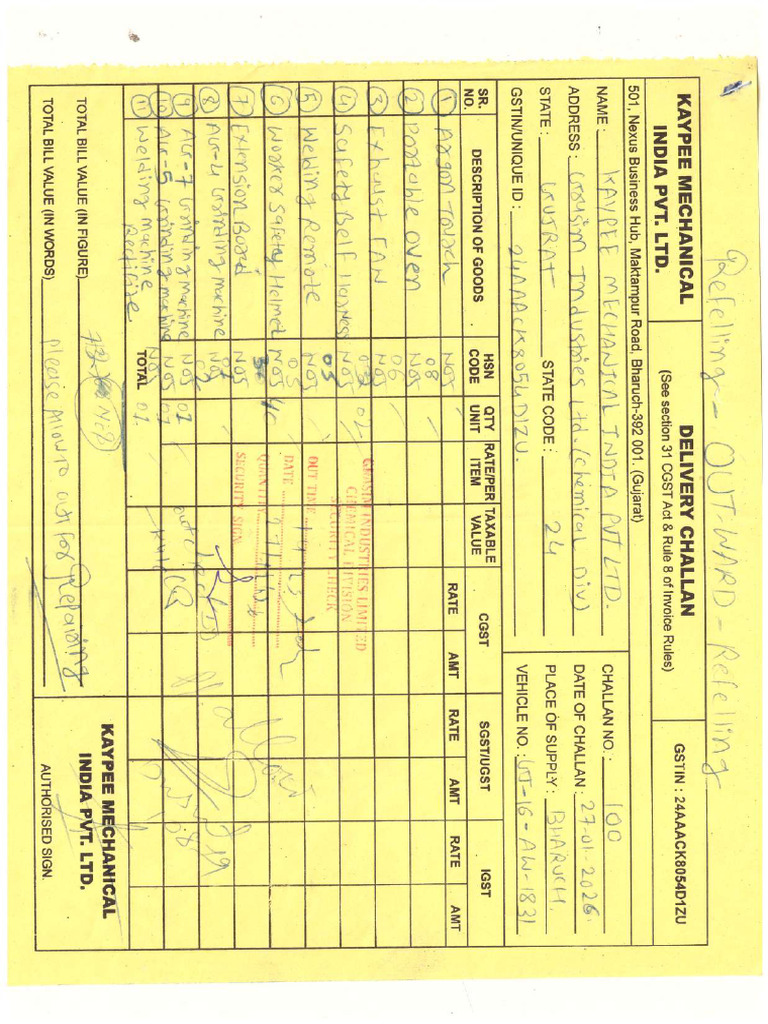 Refelling - OUT-WARD - Refelling
KAYPEE MECHANICAL INDIA PVT. LTD.
DELIVERY CHALLAN
(See section 31 CGST Act & Rule 8 of Invoice Rules)
GSTIN : 24AAACK8054D1ZU
501, Nexus Business Hub, Maktampur Road, Bharuch-392 001. (Gujarat)
NAME : KAYPEE MECHANICAL INDIA PVT LTD.
ADDRESS : Grasim Industries Ltd. (Chemical Div)
STATE : GUJRAT STATE CODE : 24
GSTIN/UNIQUE ID : 24AAACK8054D1ZU.
CHALLAN NO. : 100
DATE OF CHALLAN : 27-01-2026
PLACE OF SUPPLY : BHARUCH.
VEHICLE NO. : GJ-16-AW-1831
SR. NO. DESCRIPTION OF GOODS HSN CODE QTY UNIT RATE/PER ITEM TAXABLE VALUE CGST SGST/UGST IGST
RATE AMT RATE AMT RATE AMT
1 Argon Torch NOS
2 Portable oven 08 NOS
3 Exhaust FAN 06 NOS
4 Safety Belf Harness NOS
5 Welding Remote 05 NOS
6 Worker Safety Helmet 05 NOS
7 Extension Board NOS
8 AG-4 Grinding machine NOS
9 AG-7 Grinding machine 01 NOS
10 AG-5 Grinding machine 01 NOS
11 Welding machine Rectifire 01. NOS
GRASIM INDUSTRIES LIMITED
CHEMICAL DIVISION
SECURITY CHECK
OUT TIME
DATE
QUANTITY
SECURITY SIGN
TOTAL
TOTAL BILL VALUE (IN FIGURE)
TOTAL BILL VALUE (IN WORDS) Please Allow to out for Repairing
KAYPEE MECHANICAL INDIA PVT. LTD.
AUTHORISED SIGN.